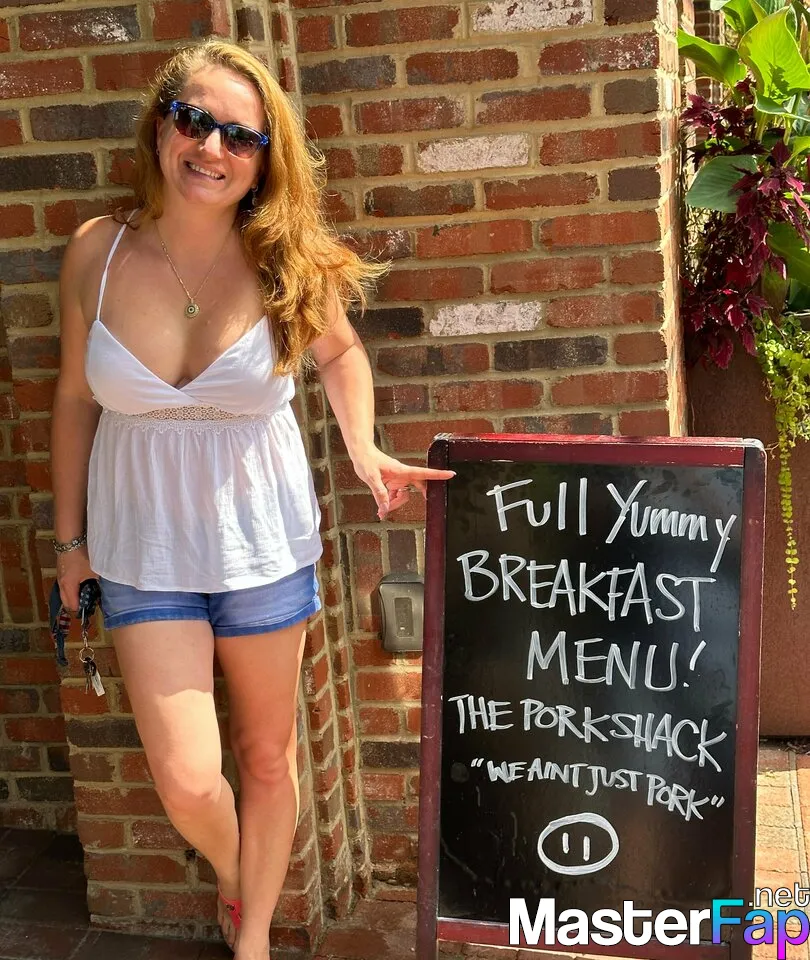 Full Yummy
BREAKFAST
MENU!
THE PORKSHACK
"WE AINT JUST PORK"
MasterFap
.net